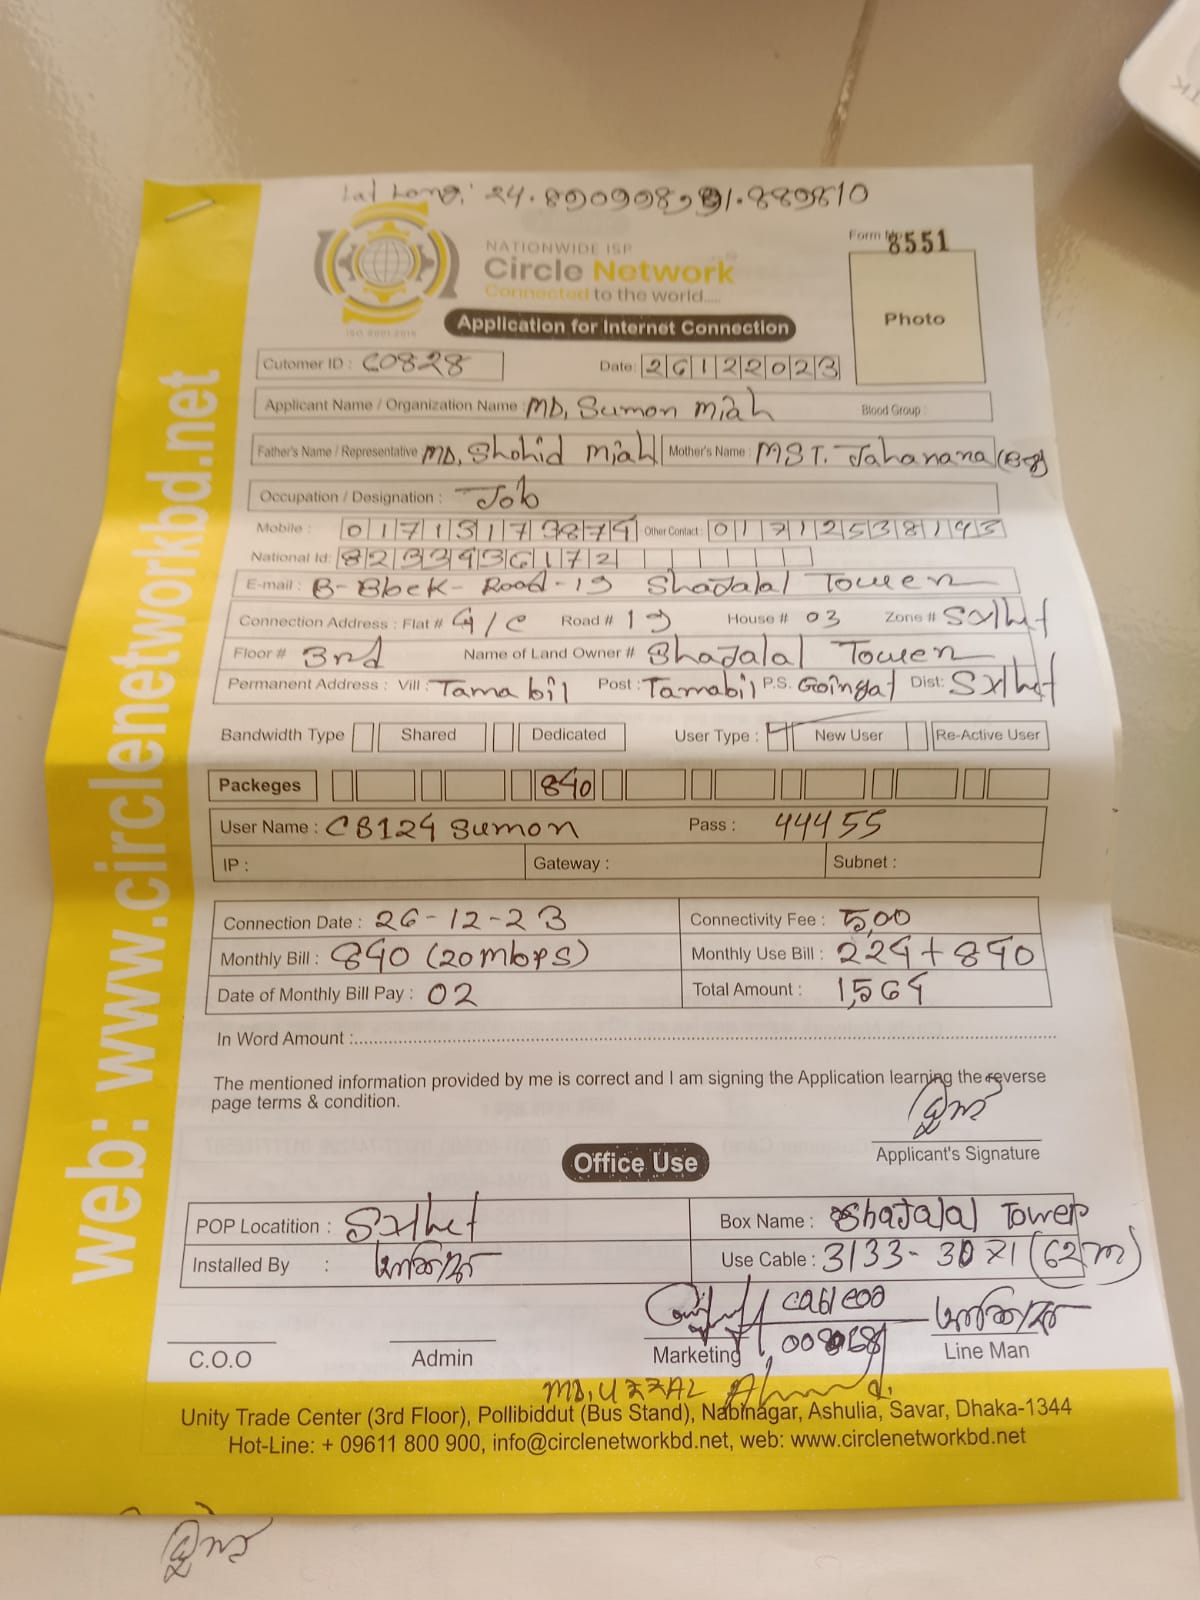 Lat Long:
NATIONWIDE ISP
Circle Network
Connected to the world.....
ISO 9001:2015
Form No: 8551
Photo
Application for Internet Connection
Cutomer ID : C0828 Date: 26122023
Applicant Name / Organization Name : MD, Sumon miah Blood Group :
Father's Name / Representative MD, Shohid miah Mother's Name : MST. Jahanara
Occupation / Designation : Job
Mobile : Other Contact :
National Id: 8233436172
E-mail : B-Block-Road-19 Shajalal Tower
Connection Address : Flat # Road # 19 House # 03 Zone # Sylhet
Floor # 3rd Name of Land Owner # Shajalal Tower
Permanent Address : Vill : Tamabil Post : Tamabil P.S. Goingat Dist: Sylhet
Bandwidth Type Shared Dedicated User Type : New User Re-Active User
Packeges 840
User Name : CB124 Sumon Pass : 44455
IP : Gateway : Subnet :
Connection Date : 26-12-23 Connectivity Fee : 500
Monthly Bill : 840 (20mbps) Monthly Use Bill : 224+840
Date of Monthly Bill Pay : 02 Total Amount : 1,564
In Word Amount :
The mentioned information provided by me is correct and I am signing the Application learning the reverse
page terms & condition.
Applicant's Signature
Office Use
POP Locatition : Sylhet Box Name : Shajalal Tower
Installed By : Use Cable : (62m)
C.O.O Admin Marketing Line Man
MD, UZZAL Ahmed.
Unity Trade Center (3rd Floor), Pollibiddut (Bus Stand), Nabinagar, Ashulia, Savar, Dhaka-1344
Hot-Line: + 09611 800 900, info@circlenetworkbd.net, web: www.circlenetworkbd.net
web: www.circlenetworkbd.net